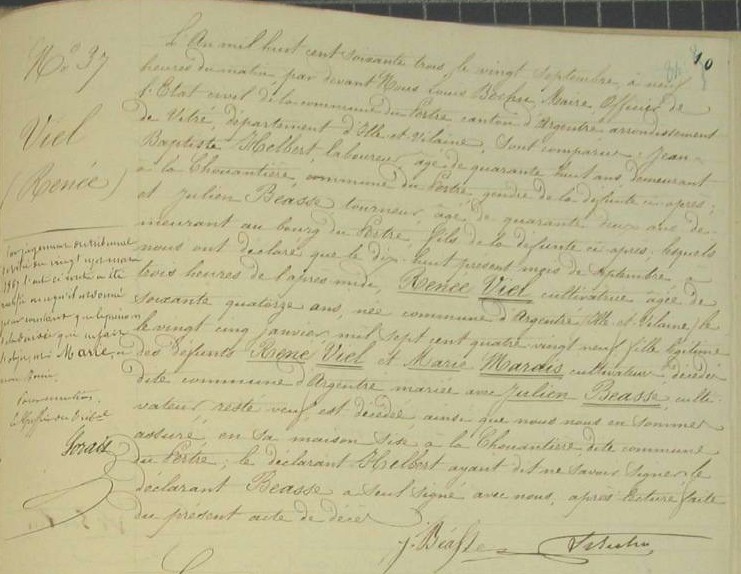 10
N° 37
Viel
(Renée)
L'An mil huit cent soixante trois, le vingt septembre, à neuf
heures du matin, par devant Nous Louis Béchu, Maire Officier de
l'Etat civil de la commune du Pertre canton d'Argentré arrondissement
de Vitré, département d'Ille et Vilaine, Sont comparus: Jean-
Baptiste Helbert, laboureur, âgé de quarante huit ans, demeurant
à la Chouantière, commune du Pertre, gendre de la défunte ci-après;
et Julien Beasse tourneur, âgé de quarante deux ans de-
meurant au bourg du Pertre, fils de la défunte ci-après; lesquels
nous ont déclaré que le dix-huit présent mois de Septembre, à
trois heures de l'après midi, Renée Viel cultivatrice âgée de
soixante quatorze ans, née commune d'Argentré (Ille et Vilaine) le
le vingt cinq janvier mil sept cent quatre vingt neuf fille légitime
des défunts René Viel et Marie Marais cultivateurs, décédés
dite commune d'Argentré mariée avec Julien Beasse, culti-
vateur, resté veuf, est décédée ainsi que nous nous en sommes
assuré, en sa maison sise à la Chouantière, dite commune
du Pertre; le déclarant Helbert ayant dit ne savoir signer, le
déclarant Beasse a seul signé avec nous, après lecture faite
du présent acte de décès
J. Béasse
Par jugement du tribunal
de Vitré du vingt
l'acte ci contre a été
rectifié
Marie
Pour mention,
Le Greffier du